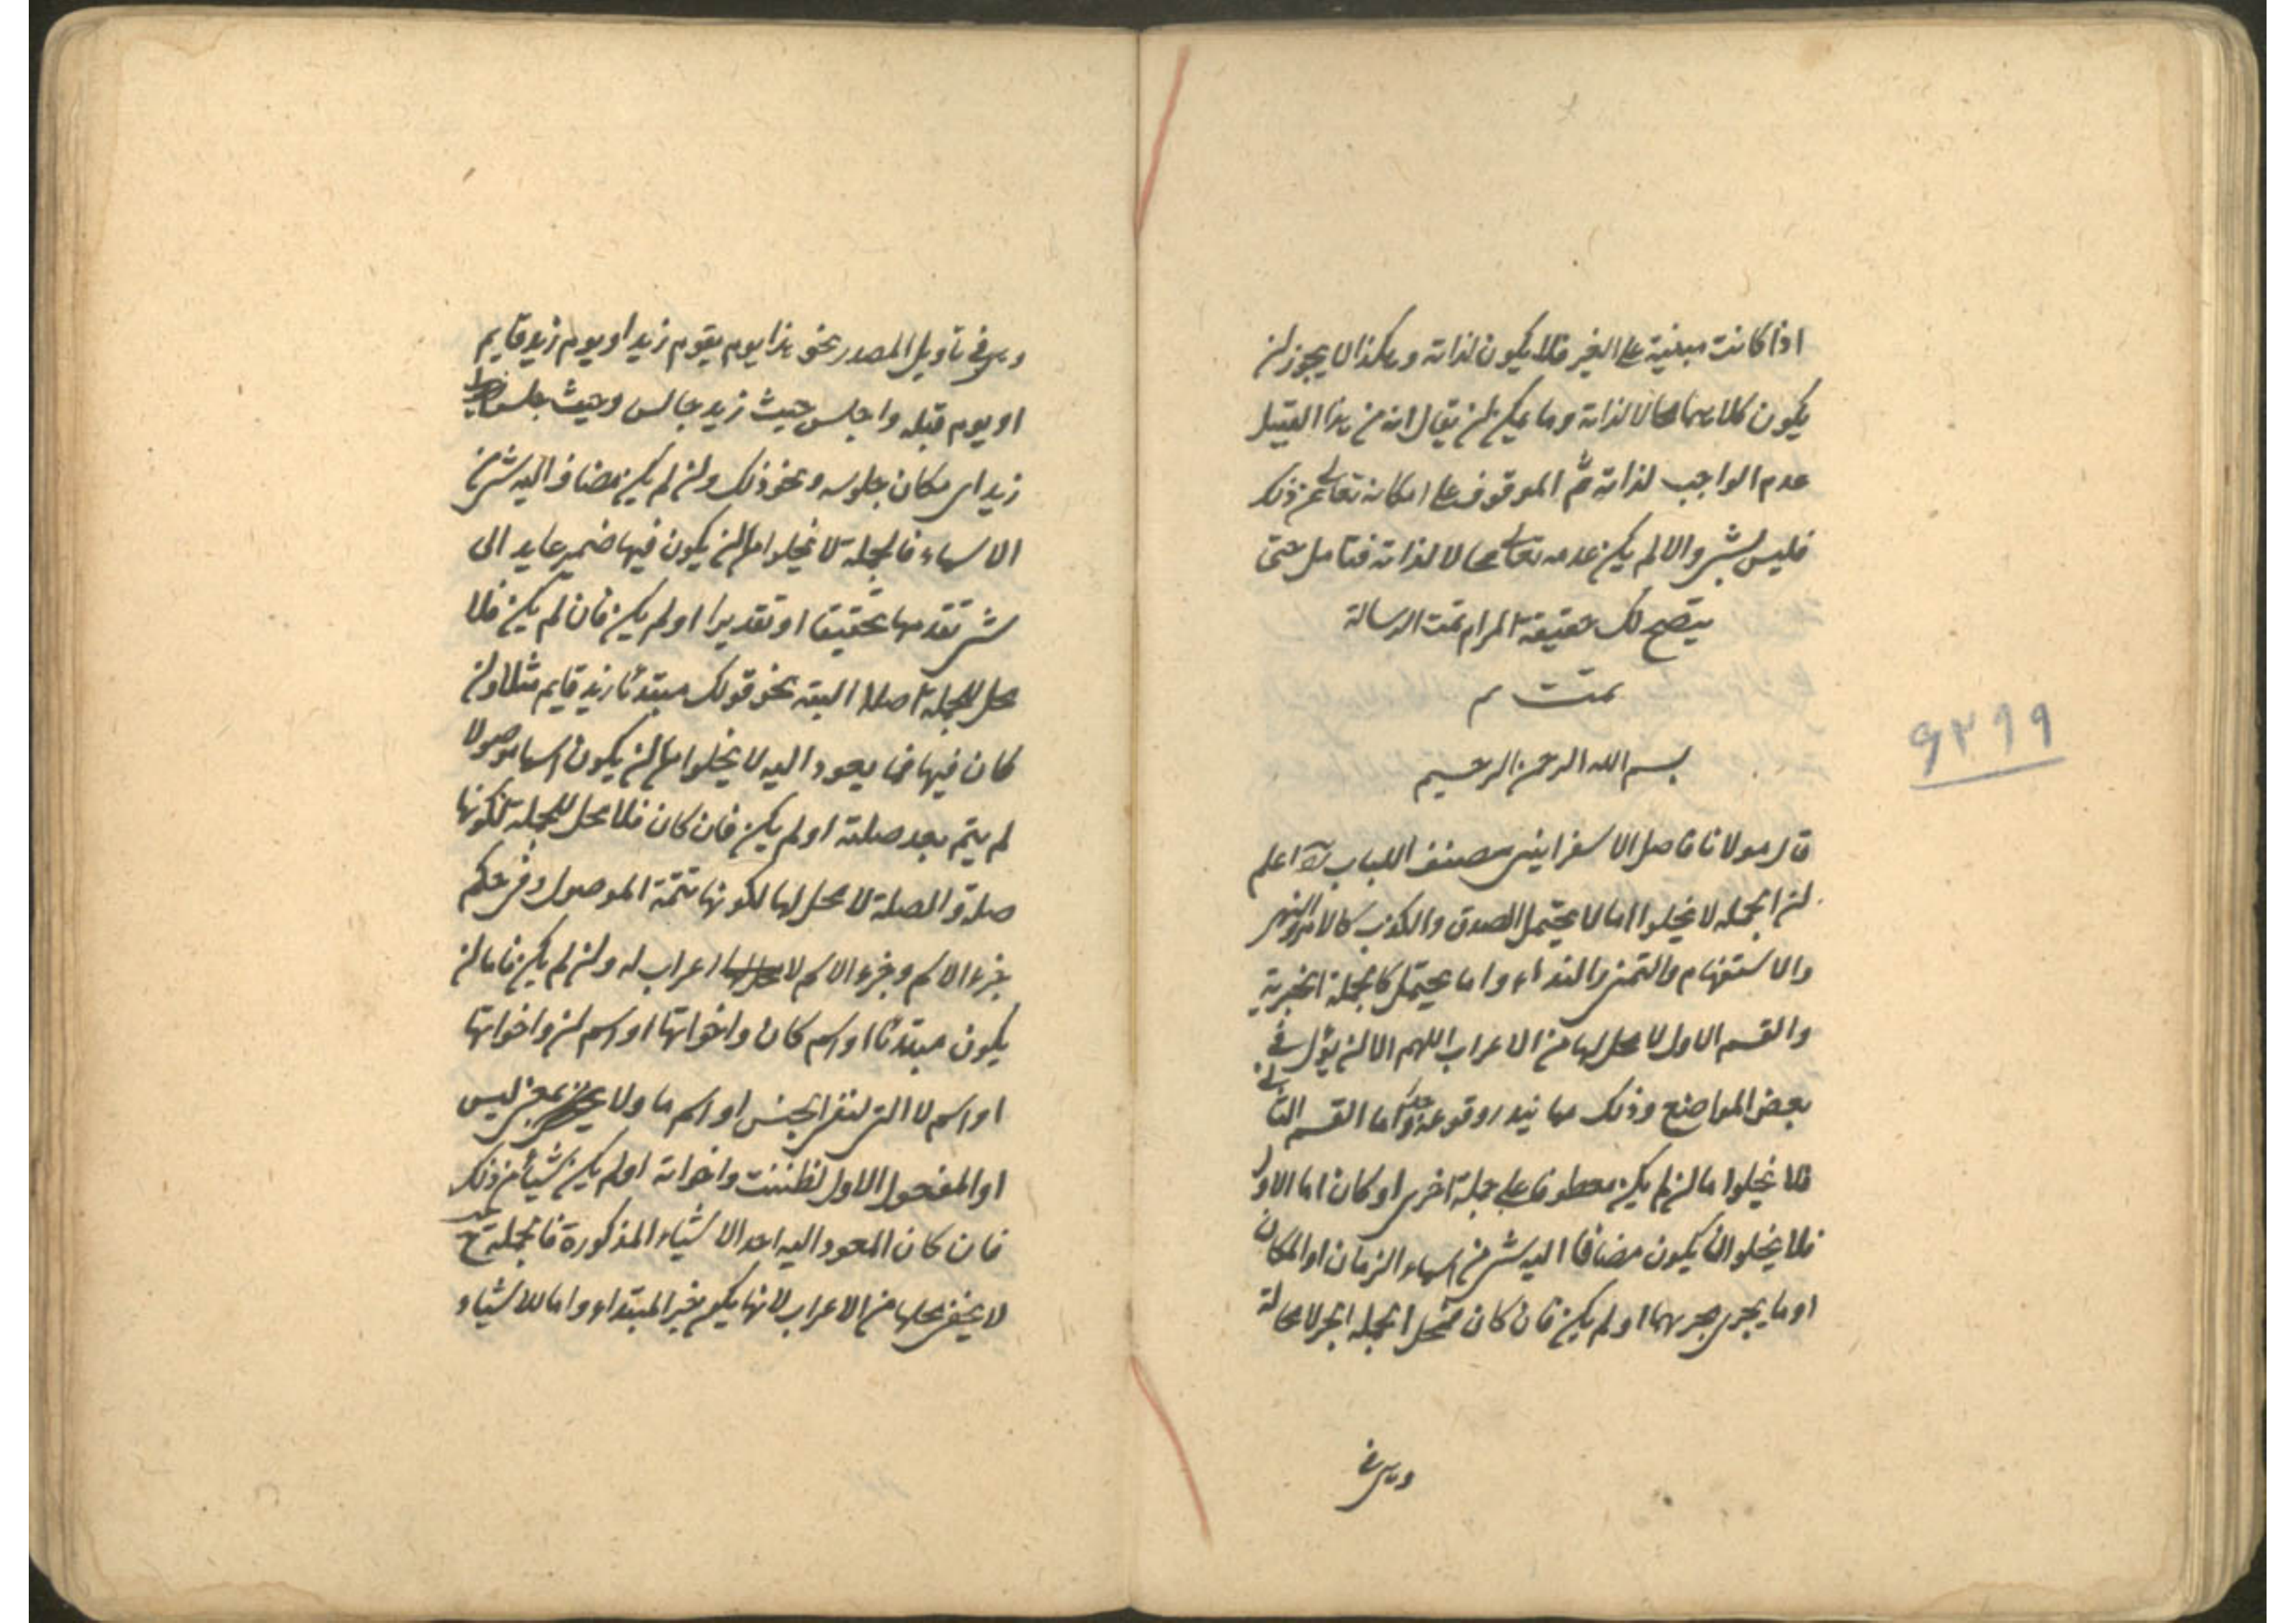 اذا كانت مبنية على الغير فلا يكون لذاته وهكذا لا يجوز ان
يكون كلاهما محالا لذاته وما يمكن ان يقال انه من هذا القبيل
عدم الواجب لذاته ثم الموقوف على امكانه تعالى عن ذلك
فليس بشئ والا لم يكن عدمه تعالى محالا لذاته فتامل حتى
يتضح لك حقيقة المرام تمت الرسالة
تمت م
بسم الله الرحمن الرحيم
قال مولانا فاضل الاسفراينى مصنف اللباب اعلم
ان الجملة لا يخلوا اما لا يحتمل الصدق والكذب كالامر والنهى
والاستفهام والتمنى والنداء واما يحتمل كالجملة الخبرية
والقسم الاول لا محل لها من الاعراب اللهم الا ان يؤل فى
بعض المواضع وذلك مما يندر وقوعه واما القسم الثانى
فلا يخلوا ما ان لم يكن معطوفا على جملة اخرى او كان اما الاول
فلا يخلو ان يكون مضافا اليه شئ من اسماء الزمان او المكان
او ما يجرى مجريهما او لم يكن فان كان فمحل الجملة الجر لا محالة
وهى فى
٩٢٩٩
وهى فى تاويل المصدر نحو هذا يوم يقوم زيد او يوم زيد قايم
او يوم قبله واجلس حيث زيد جالس وحيث جلس
زيد اى مكان جلوسه ونحو ذلك وان لم يكن مضافا اليه شئ من
الاسماء فالجملة لا يخلوا ما ان يكون فيها ضمير عايد الى
شئ تقدمها تحقيقا او تقديرا او لم يكن فان لم يكن فلا
محل للجملة اصلا البته نحو قولك مبتدئا زيد قايم مثلا وان
كان فيها فما يعود اليه لا يخلوا ما ان يكون اسما موصولا
لم يتم بعد صلته او لم يكن فان كان فلا محل للجملة لكونها
صلة والصلة لا محل لها لكونها تتمة الموصول وفى حكم
جزء الاسم وجزء الاسم لا اعراب له وان لم يكن فاما ان
يكون مبتدئا او اسم كان واخواتها او اسم ان واخواتها
او اسم لا التى لنفى الجنس او اسم ما ولا بمعنى ليس
او المفعول الاول لظننت واخواته او لم يكن شيئا من ذلك
فان كان المعود اليه احد الاشياء المذكورة فالجملة ح
لا يخفى محلها من الاعراب لانها يكون خبر المبتداء واما للاشياء